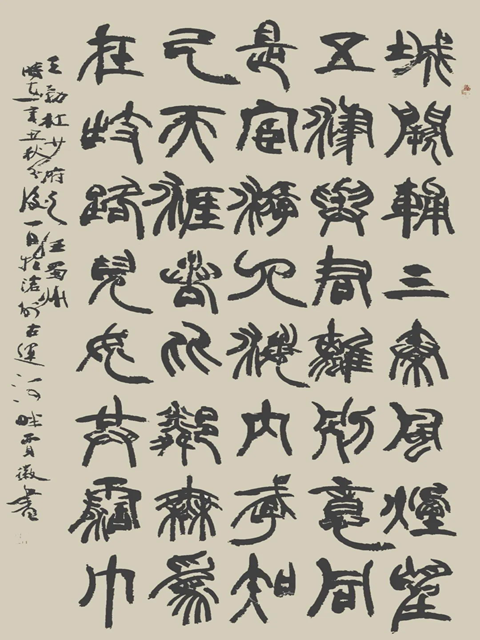 城闕輔三秦風煙望
五津與君離別意同
是宦游人海內存知
己天涯若比鄰無為
在歧路兒女共霑巾
王勃杜少府之任蜀州
辛丑秋分後一日於滄州古運河畔賈徽書